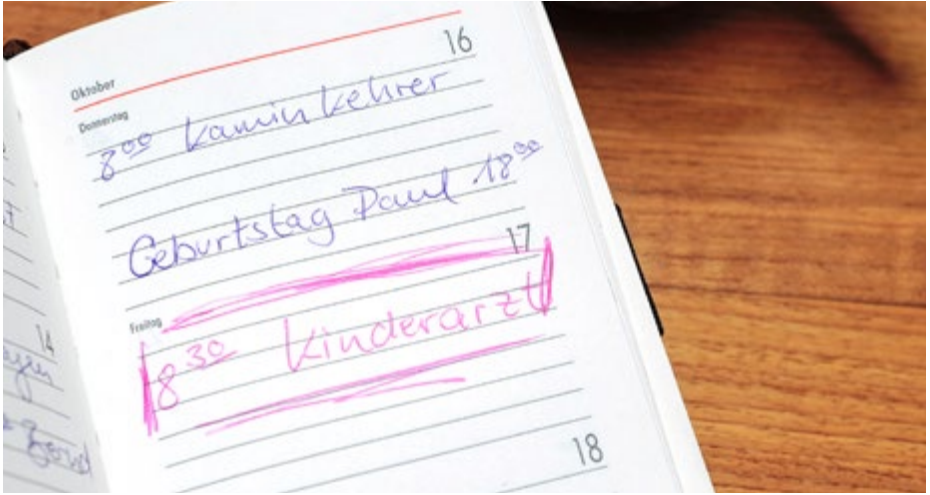 Oktober
16
Donnerstag
8⁰⁰ Kaminkehrer
Geburtstag Paul 18⁰⁰
17
Freitag
8³⁰ Kinderarzt
14
18